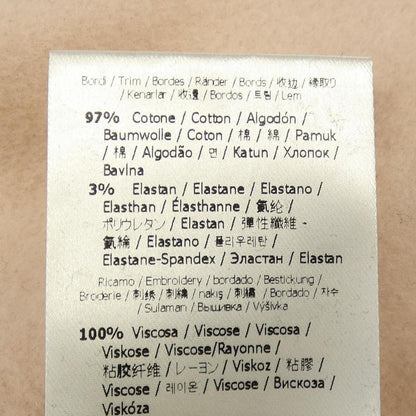 Bordi / Trim / Bordes / Ränder / Bords / 收边 / 縁取り
/ Kenarlar / 收邊 / Bordos / 트림 / Lem
97% Cotone / Cotton / Algodón /
Baumwolle / Coton / 棉 / 綿 / Pamuk
/ 棉 / Algodão / 면 / Katun / Хлопок /
Bavlna
3% Elastan / Elastane / Elastano /
Elasthan / Élasthanne / 氨纶 /
ポリウレタン / Elastan / 彈性纖維 -
氨綸 / Elastano / 폴리우레탄 /
Elastane-Spandex / Эластан / Elastan
Ricamo / Embroidery / bordado / Bestickung /
Broderie / 刺绣 / 刺繍 / nakış / 刺繡 / Bordado / 자수
/ Sulaman / Вышивка / Výšivka
100% Viscosa / Viscose / Viscosa /
Viskose / Viscose/Rayonne /
粘胶纤维 / レーヨン / Viskoz / 粘膠 /
Viscose / 레이온 / Viscose / Вискоза /
Viskóza